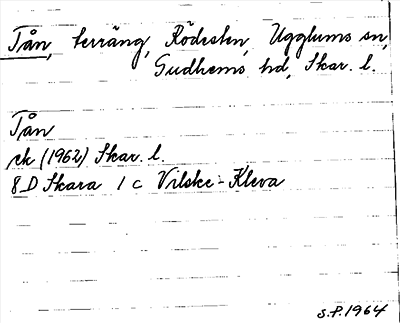 Tån, terräng, Rödesten, Ugglums sn,
Gudhems hd, Skar. l.
Tån
ek (1962) Skar. l.
8D Skara 1 c Vilske-Kleva
S.P. 1964